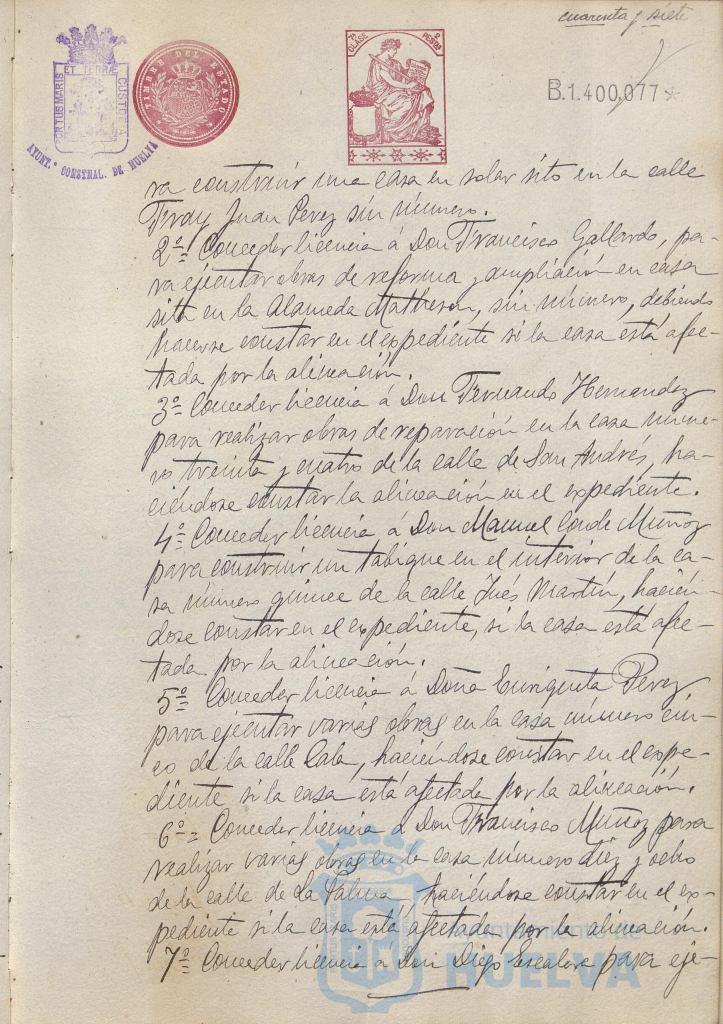 cuarenta y siete
PORTUS MARIS ET TERRÆ CUSTODIA
AYUNT.º CONSTNAL. DE HUELVA
TIMBRE DEL ESTADO
7ª CLASE 2 PESTAS
B.1.400,077*
ra construir una casa en solar sito en la calle
Fray Juan Perez sin número.
2º= Conceder licencia á Don Francisco Gallardo, pa-
ra ejecutar obras de reforma y ampliación en casa
sita en la Alameda Matheson, sin número, debiendo
hacerse constar en el expediente si la casa está afec-
tada por la alineación.
3º= Conceder licencia á Don Fernando Hernandez
para realizar obras de reparación en la casa núme-
ro treinta y cuatro de la calle de San Andrés, ha-
ciéndose constar la alineación en el expediente.
4º= Conceder licencia á Don Manuel Conde Muñoz
para construir un tabique en el interior de la ca-
sa número quince de la calle Inés Martín, hacién-
dose constar en el expediente, si la casa está afec-
tada por la alineación.
5º= Conceder licencia á Doña Enriqueta Perez
para ejecutar varias obras en la casa número cin-
co de la calle Cala, haciéndose constar en el expe-
diente si la casa está afectada por la alineación.
6º= Conceder licencia á Don Francisco Muñoz para
realizar varias obras en la casa número diez y ocho
de la calle de La Palma, haciéndose constar en el ex-
pediente si la casa está afectada por la alineación.
7º= Conceder licencia a Don Diego Escalera para eje-
Ayuntamiento de
HUELVA